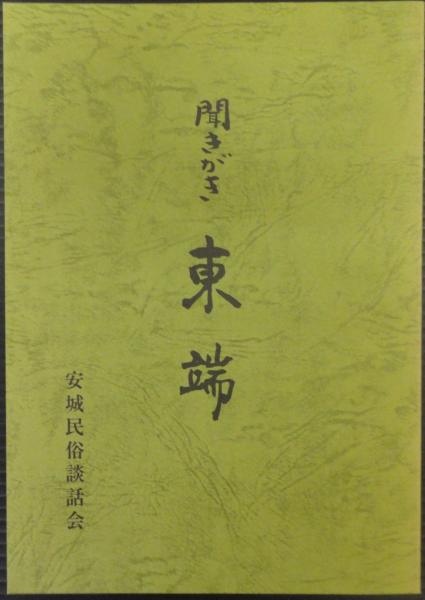 聞きがき 東端
安城民俗談話会